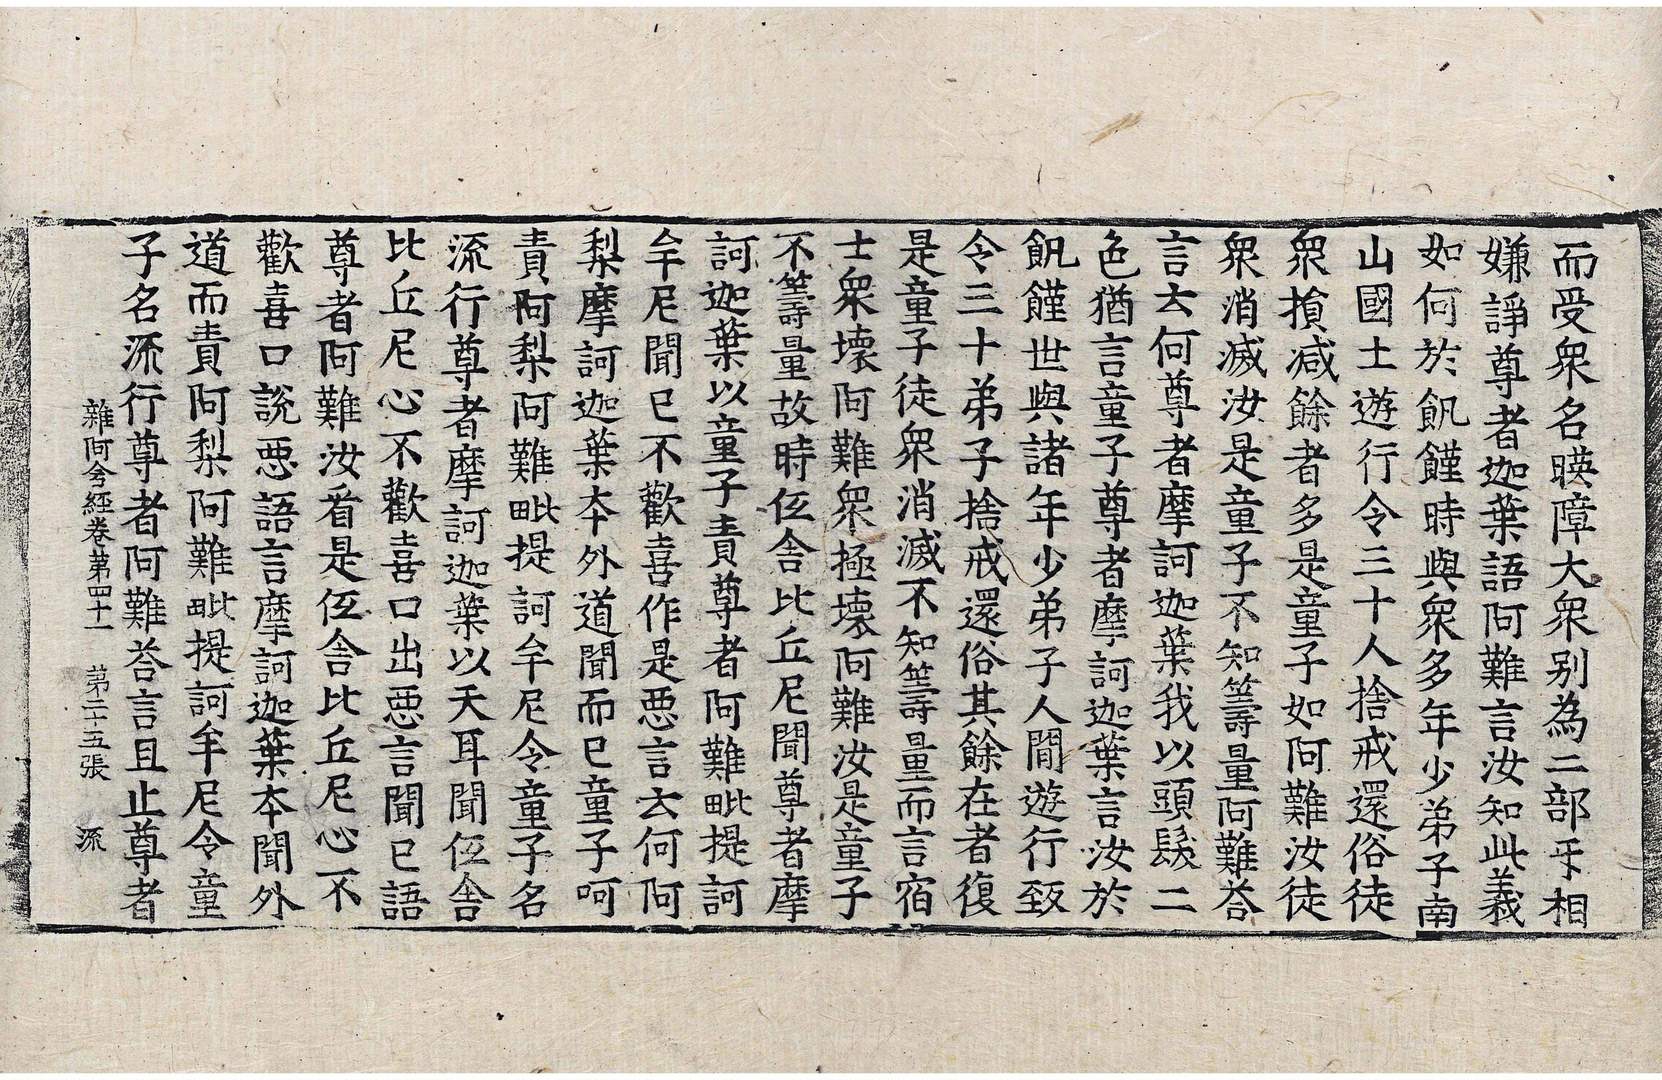 而受衆名暎障大衆别為二部㸦相
嫌諍尊者迦葉語阿難言汝知此義
如何於飢饉時與衆多年少弟子南
山國土遊行令三十人捨戒還俗徒
衆損减餘者多是童子如阿難汝徒
衆消滅汝是童子不知籌量阿難荅
言云何尊者摩訶迦葉我以頭髮二
色猶言童子尊者摩訶迦葉言汝於
飢饉世與諸年少弟子人閒遊行致
令三十弟子捨戒還俗其餘在者復
是童子徒衆消滅不知籌量而言宿
士衆壞阿難衆極壞阿難汝是童子
不籌量故時伍舍比丘尼聞尊者摩
訶迦葉以童子責尊者阿難毗提訶
牟尼聞已不歡喜作是惡言云何阿
梨摩訶迦葉夲外道聞而已童子呵
責阿梨阿難毗提訶牟尼令童子名
流行尊者摩訶迦葉以天耳聞伍舍
比丘尼心不歡喜口出惡言聞已語
尊者阿難汝看是伍舍比丘尼心不
歡喜口說惡語言摩訶迦葉夲聞外
道而責阿梨阿難毗提訶牟尼令童
子名流行尊者阿難荅言且止尊者
雜阿含經卷第四十一 第二十五張 流